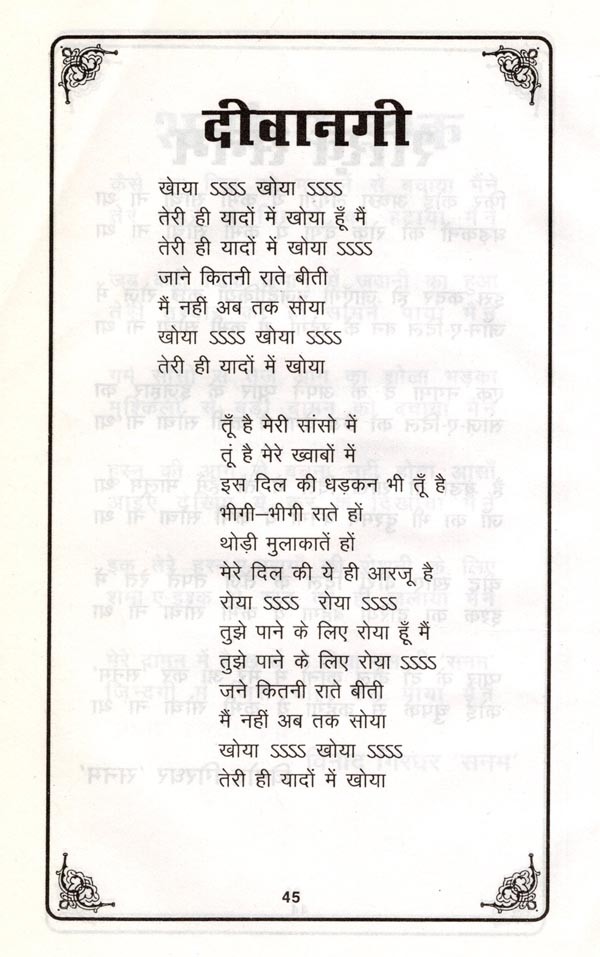 दीवानगी
खेाया ऽऽऽऽ खोया ऽऽऽऽ
तेरी ही यादों में खोया हूँ मैं
तेरी ही यादों में खोया ऽऽऽऽ
जाने कितनी राते बीती
मैं नहीं अब तक सोया
खोया ऽऽऽऽ खोया ऽऽऽऽ
तेरी ही यादों में खोया
तूँ है मेरी सांसो में
तूं है मेरे ख्वाबों में
इस दिल की धड़कन भी तूँ है
भीगी–भीगी राते हों
थोड़ी मुलाकातें हों
मेरे दिल की ये ही आरजू है
रोया ऽऽऽऽ रोया ऽऽऽऽ
तुझे पाने के लिए रोया हूँ मैं
तुझे पाने के लिए रोया ऽऽऽऽ
जने कितनी राते बीती
मैं नहीं अब तक सोया
खोया ऽऽऽऽ खोया ऽऽऽऽ
तेरी ही यादों में खोया
45